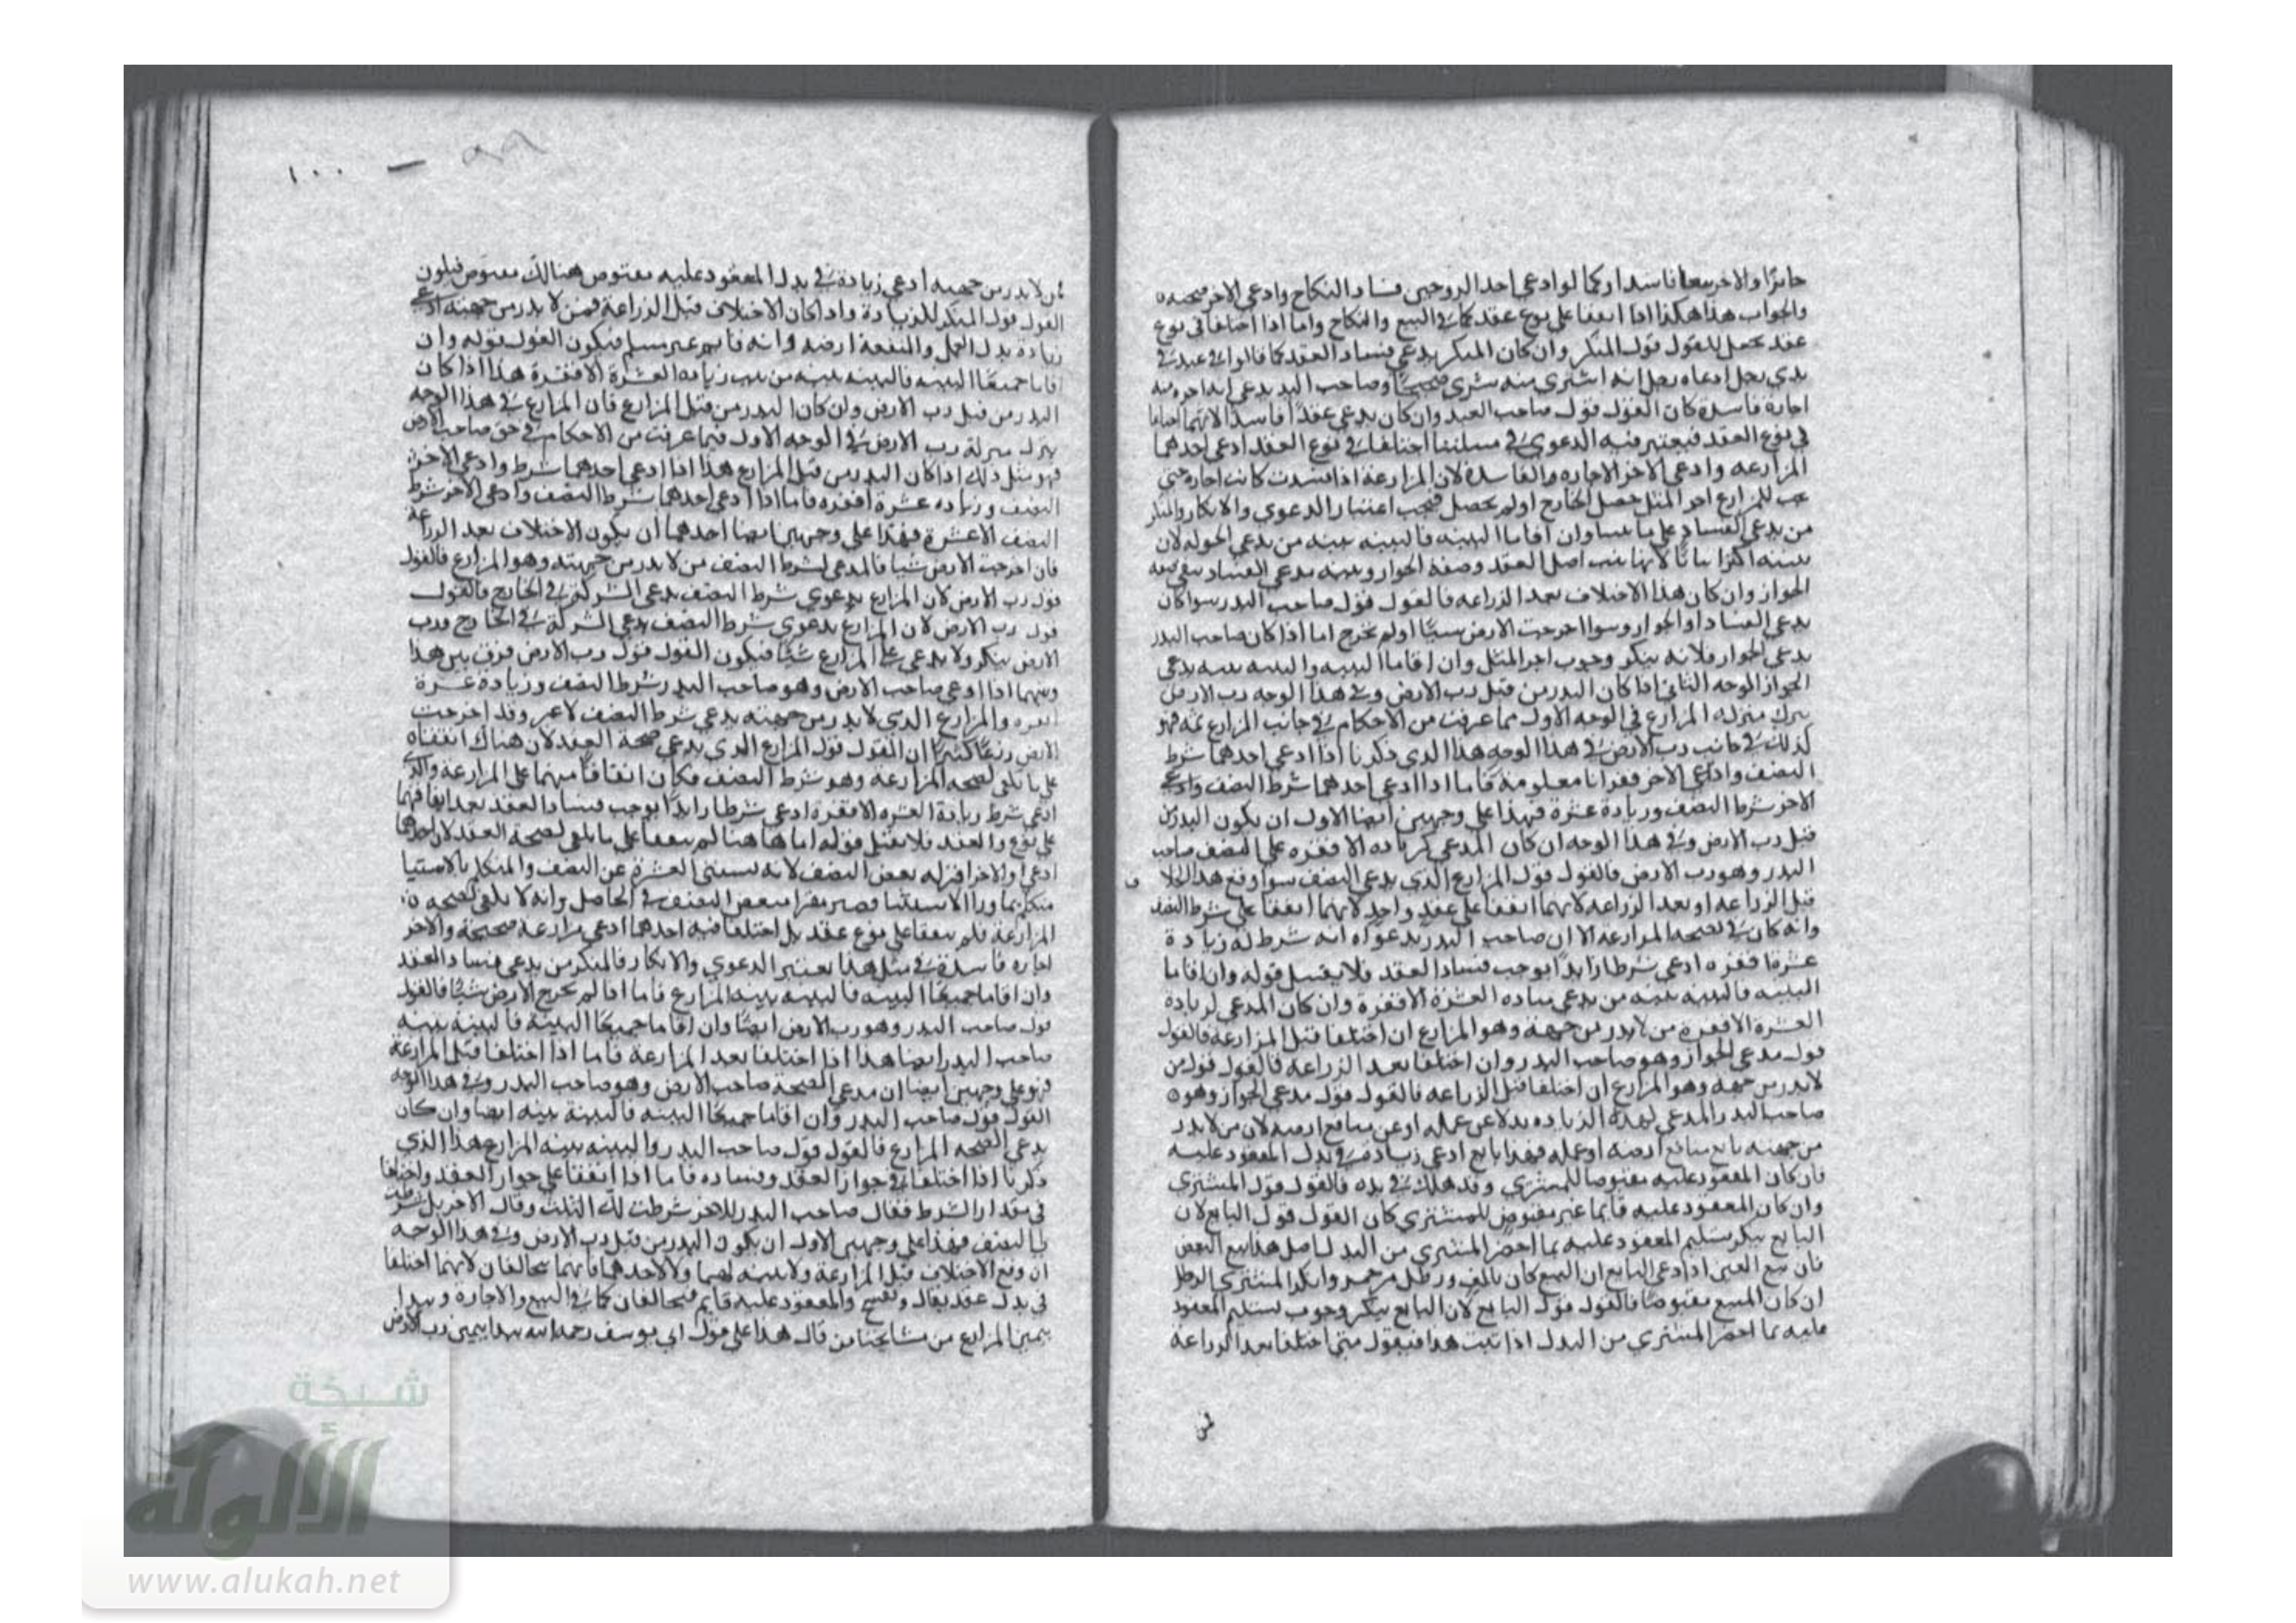 جايزا والاخر بيعا فاسدا وكما لو ادعى احد الزوجين فساد النكاح وادعى الاخر صحته
والجواب هذا هكذا اذا اتفقا على نوع عقد كما في البيع والنكاح واما اذا اختلفا في نوع
عقد يجعل القول قول المنكر وان كان المنكر يدعي فساد العقد كما قالوا في عبد في
يدي رجل ادعاه رجل انه اشترى منه شرى صحيحا وصاحب اليد يدعي انه اجره منه
اجارة فاسدة كان القول قول صاحب العبد وان كان يدعي عقدا فاسدا لانهما اختلفا
في نوع العقد فيعتبر فيه الدعوي وفي مسئلتنا اختلفا في نوع العقد ادعى احدهما
المزارعه وادعى الاخر الاجاره والفاسدة لان المزارعة اذا فسدت كانت اجارة حتى
يجب للمزارع اجر المثل حصل الخارج او لم يحصل فيجب اعتبار الدعوي والانكار والمنكر
من يدعي الفساد على ما بينا وان اقاما البينه فالبينه بينه من يدعي الجواز لان
بينته اكثر اثباتا لانها تثبت اصل العقد وصفة الجواز وبينه مدعي الفساد ينفي صفه
الجواز وان كان هذا الاختلاف بعد الزراعه فالقول قول صاحب البدر سوا كان
يدعي الفساد او الجواز وسوا اخرجت الارض شيئا او لم تخرج اما اذا كان صاحب البدر
يدعي الجواز فلانه ينكر وجوب اجر المثل وان اقاما البينه والبينه بينه مدعي
الجواز الوجه الثاني اذا كان البدر من قبل رب الارض وفي هذا الوجه رب الارض
ينزل منزله المزارع في الوجه الاول مما عرفت من الاحكام في جانب المزارع ثمه فهو
كذلك في جانب رب الارض في هذا الوجه هذا الذي ذكرنا اذا ادعى احدهما شرط
النصف وادعى الاخر قفزانا معلومة فاما اذا ادعى احدهما شرط النصف وادعى
الاخر شرط النصف وزيادة عشرة فهذا على وجهين ايضا الاول ان يكون البدر من
قبل رب الارض وفي هذا الوجه ان كان المدعي لزياده الاقفزه على النصف صاحب
البدر وهو رب الارض فالقول قول المزارع الذي يدعي النصف سوا وقع هذا الخلا ف
قبل الزراعه او بعد الزراعه لانهما اتفقا على عقد واحد لانهما اتفقا على شرط النصف
وانه كان في لصحه المزارعه الا ان صاحب البدر بدعواه انه شرط له زيادة
عشرة اقفزه ادعى شرطا زايدا يوجب فساد العقد فلا يقبل قوله وان اقاما
البينه فالبينه بينه من يدعي زياده العشرة الاقفزة وان كان المدعي لزيادة
العشرة الاقفزة من لا بدر من جهته وهو المزارع ان اختلفا قبل المزارعة فالقول
قول مدعي الجواز وهو صاحب البدر وان اختلفا بعد الزراعه فالقول قول من
لا بدر من جهته وهو المزارع ان اختلفا قبل الزراعه فالقول قول مدعي الجواز وهو
صاحب البدر المدعي لهذه الزياده بدلا عن عمله او عن منافع ارضه لان من لا بدر
من جهته بايع منافع ارضه او عمله فهذا بايع ادعى زيادة في بدل المعقود عليه
فان كان المعقود عليه مقبوضا للمشتري وقد هلك في يده فالقول قول المشتري
وان كان المعقود عليه قايما غير مقبوض للمشتري كان القول قول البايع لان
البايع ينكر تسليم المعقود عليه بما احضر المشتري من البدل اصل هذا بيع العين
فان بيع العين اذا ادعى البايع ان البيع كان بالف ورطل من خمر وانكر المشتري الرطل
ان كان المبيع مقبوضا فالقول قول البايع لان البايع ينكر وجوب تسليم المعقود
عليه بما احضر المشتري من البدل اذا ثبت هذا فنقول متى اختلفا بعد الزراعة
فمن
٩٩ — ١٠٠
فمن لا بدر من جهته ادعى زيادة في بدل المعقود عليه مقبوض هنالك مقبوض فيكون
القول قول المنكر للزيادة واذا كان الاختلاف قبل الزراعة فمن لا بدر من جهته ادعى
زيادة بدل العمل والمنفعة ارضه وانه قايم غير مسلم فيكون القول قوله وان
اقاما جميعا البينه فالبينه بينه من يثبت زياده العشرة الاقفزة هذا اذا كان
البدر من قبل رب الارض وان كان البدر من قبل المزارع فان المزارع في هذا الوجه
ينزل منزلة رب الارض في الوجه الاول فيما عرفت من الاحكام في حق صاحب الارض
فهو مثل ذلك اذا كان البدر من قبل المزارع هذا اذا ادعى احدهما شرط وادعى الاخر
النصف وزياده عشرة اقفزه فاما اذا ادعى احدهما شرط النصف وادعى الاخر شرط
النصف الا عشرة فهذا على وجهين ايضا احدهما ان يكون الاختلاف بعد الزراعة
فان اخرجت الارض شيا فالمدعي لشرط النصف من لا بدر من جهته وهو المزارع فالقول
قول رب الارض لان المزارع بدعوي شرط النصف يدعي الشركة في الخارج فالقول
قول رب الارض لان المزارع بدعوي شرط النصف يدعي الشركة في الخارج ورب
الارض ينكر ولا يدعي على المزارع شيا فيكون القول قول رب الارض فرق بين هذا
وبينهما اذا ادعى صاحب الارض وهو صاحب البدر شرط النصف وزيادة عشرة
اقفزه والمزارع الذي لا بدر من جهته يدعي شرط النصف لا غير وقد اخرجت
الارض ربعا كثيرا ان القول قول المزارع الذي يدعي صحة العقد لان هناك اتفقنا
على ما يكفي لصحه المزارعة وهو شرط النصف فكان اتفاقا منهما على المزارعة والذي
ادعى شرط زيادة العشره الاقفزة ادعى شرطا زايدا يوجب فساد العقد بعد اتفاقهما
على نوع والعقد فلا يقبل قوله اما ها هنا لم يتفقا على ما يكفي لصحة العقد لان احدهما
ادعى والاخر اقر له بعض النصف لانه يستثني العشرة عن النصف والمتكلم بالاستثنا
متكلم بما ورا الاستثنا فصير مقرا ببعض النصف في الحاصل وانه لا يكفي لصحه
المزارعة فلم يتفقا على نوع عقد بل اختلفا فيه احدهما ادعى مزارعة صحيحة والاخر
اجاره فاسدة في مثل هذا يعتبر الدعوي والانكار فالمنكر من يدعي فساد العقد
وان اقاما جميعا البينه فالبينه بينه المزارع فاما اذا لم تخرج الارض شيا فالقول
قول صاحب البدر وهو رب الارض ايضا وان اقاما جميعا البينة فالبينه بينه
صاحب البدر ايضا هذا اذا اختلفا بعد المزارعة فاما اذا اختلفا قبل المزارعة
فهو على وجهين ايضا ان مدعي الصحة صاحب الارض وهو صاحب البدر وفي هذا الوجه
القول قول صاحب البدر وان اقاما جميعا البينه فالبينة بينه ايضا وان كان
يدعي الصحه المزارع فالقول قول صاحب البدر والبينه بينه المزارع هذا الذي
ذكرنا اذا اختلفا في جواز العقد وفساده فاما اذا اتفقا على جواز العقد واختلفا
في مقدار الشرط فقال صاحب البدر للاخر شرطت لك الثلث وقال الاخر بل شرطت
لي النصف فهذا على وجهين الاول ان يكون البدر من قبل رب الارض وفي هذا الوجه
ان وقع الاختلاف قبل المزارعة ولا بينه لهما ولا لاحدهما فانهما يتحالفان لانهما اختلفا
في بدل عقد يقال ويفسخ والمعقود عليه قايم فيتحالفان كما في البيع والاجارة ويبدا
بيمين المزارع من مشايخنا من قال هذا على قول ابي يوسف رحمه الله يبدا بيمين رب الارض
شبكة
الألوكة
www.alukah.net